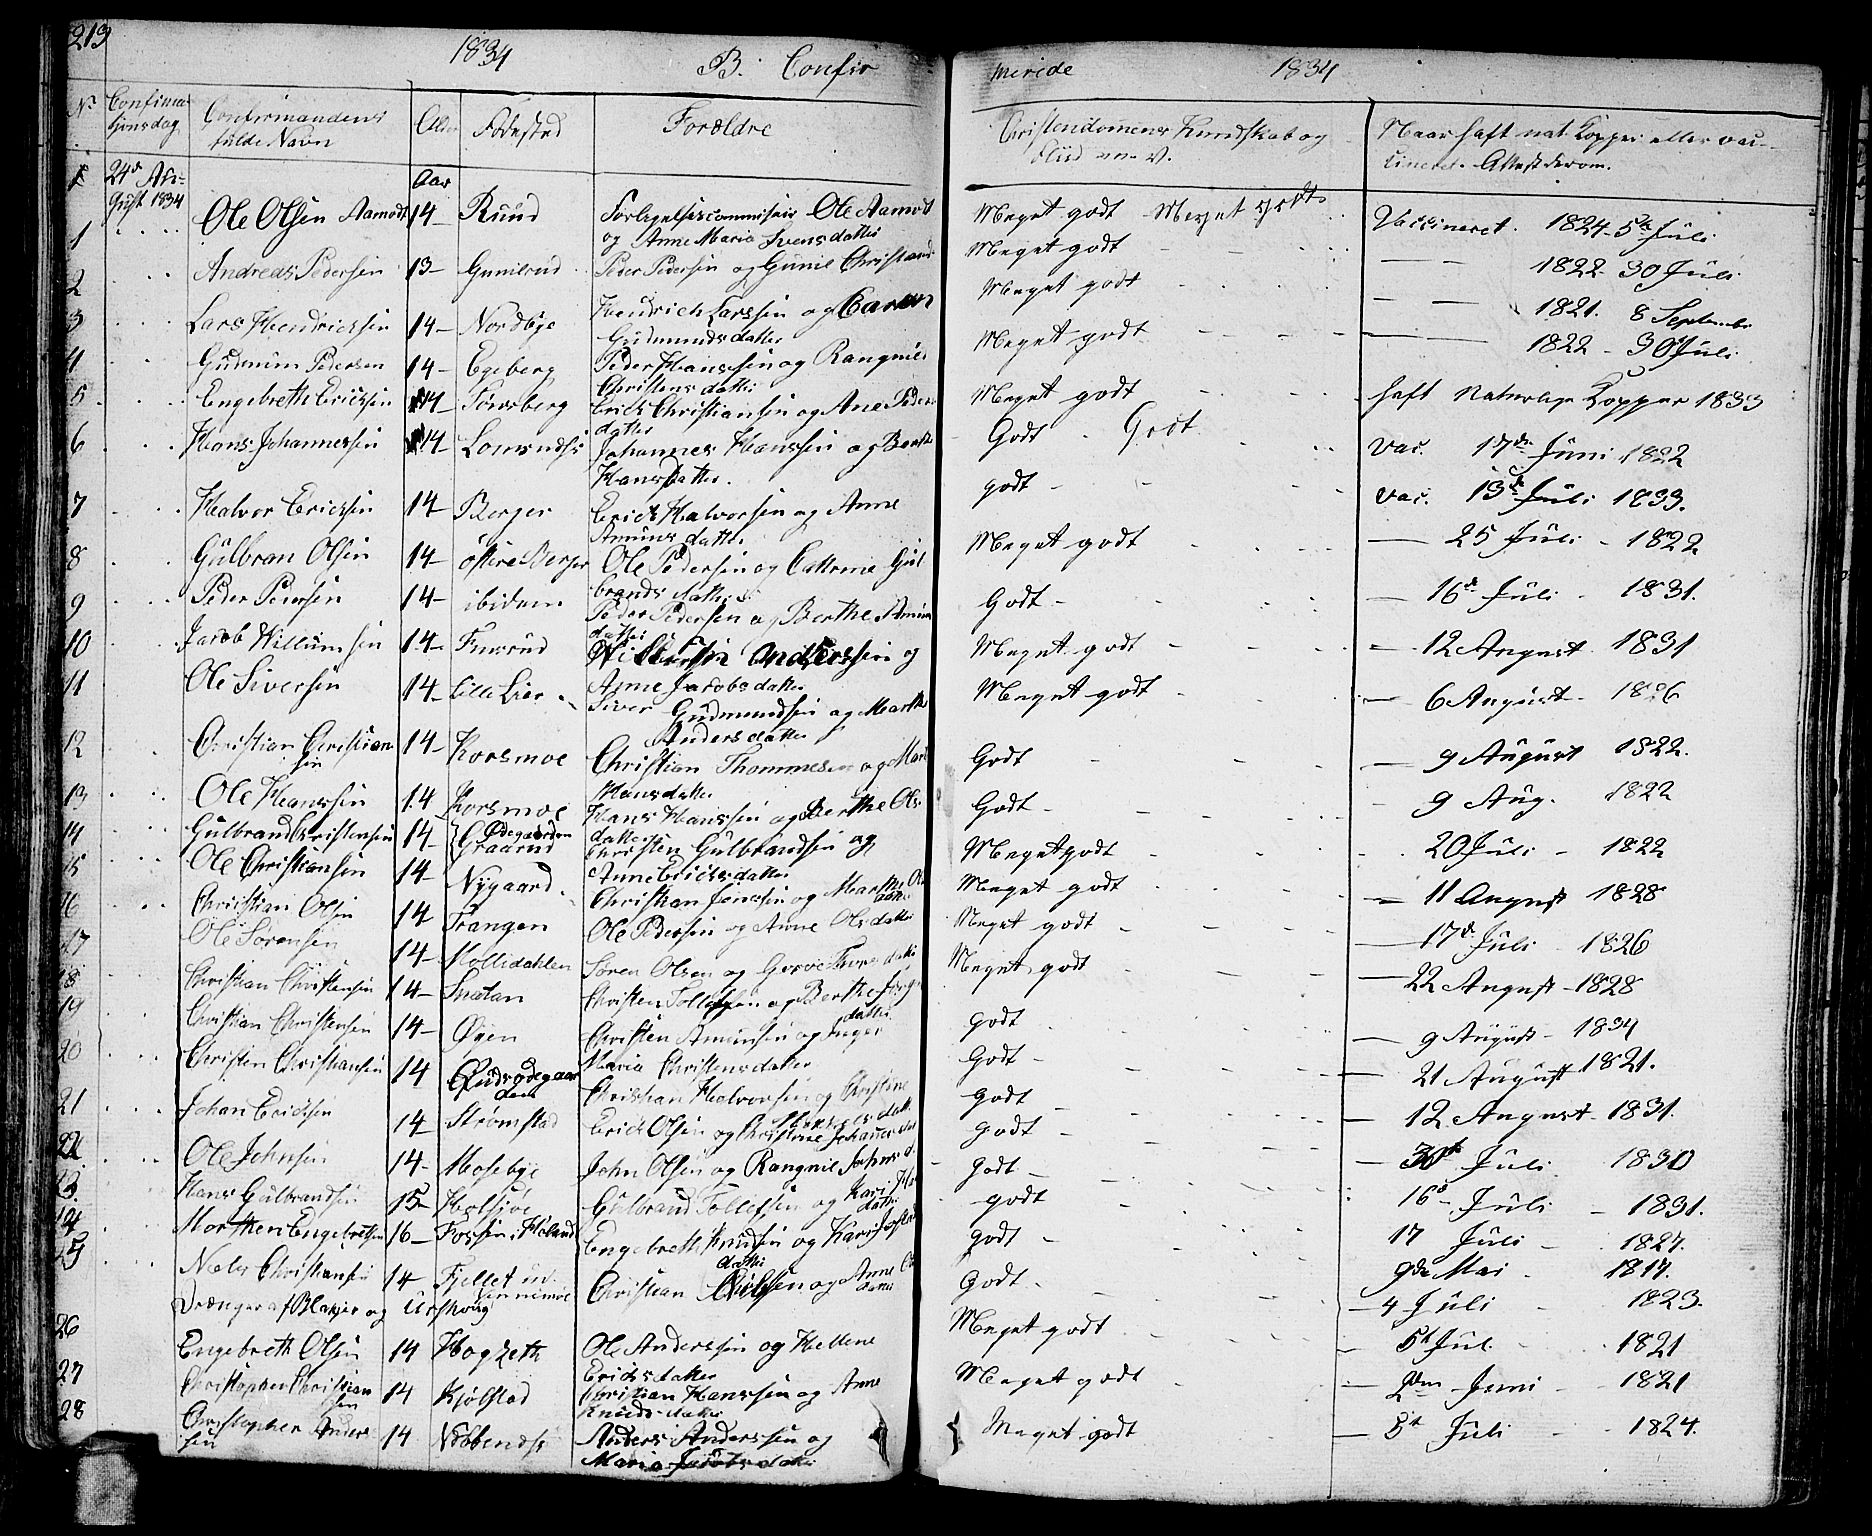 213
1834 B. Confir merede 1834
No Confirma- tjonsdag Confirmandens fulde Navn Alder Fødested Forældre Christendomens Kundskab og Flid m. v. Naar haft nat. Kopper eller vac- cineret. Attest derom.
24de Au- gust 1834 Aar
1 Ole Olsen Aamodt 14 Ruud Ole Aamodt og Anne Maria Svensdatter Meget godt Meget godt Vaccineret. 1824 5te Juli
2 Andreas Pedersen 13 - Gunilrud Peder Pedersen og Gunil Meget godt 1822. 30 Juli
3 Lars Hendrichsen 14 - Nordbye Hendrich Larssen og Caren Gudmundsdatter Meget godt 1821. 8 September
4 Gudmun Pedersen 14 - Egeberg Peder Hanssen og Rangnild Christensdatter Meget godt 1822 - 30 Juli
5 Engebreth Erichsen 14 - Tonsberg Erich Christiansen og Ane Peders datter Meget godt haft Naturlige Kopper 1833
6 Hans Johannessen 14 - Johannes Hanssen og Berthe Hansdatter. Godt Godt vac. 17de Juni 1822
7 Halvor Erichsen 14 - Berger Erich Halvorsen og Anne Amunsdatter godt vac. 13de Juli 1833.
8 Gulbran Olsen 14 - østre Berger Ole Pedersen og Cathrine Gul brandsdatter Meget godt 25 Juli - 1822
9 Peder Pedersen 14 - ibidem Peder Pedersen og Berthe Amun datter Godt 16de Juli 1831.
10 Jacob Willumsen 14 - Willumsen Anderssen og Anne Jacobsdatter Meget godt 12 August 1831
11 Ole Siversen 14 - Lille Lier Siver Gudmundsen og Marthe Andersdatter Meget godt 6 August 1826
12 Christian Christian sen 14 - Korsmoe Christian Thommesen og Hansdatter Godt 9 August 1822.
13 Ole Hanssen 14 Korsmoe Hans Hanssen og Berthe Ols datter Godt 9 Aug. 1822
14 Gulbrand Christensen 14 - Ødegaarden Graarud Christen Gulbrandsen og Anne Erichsdatter Meget godt 20 Juli 1822
15 Ole Christiansen 14 - Nygaard Christian Jenssen og Marthe datter Meget godt 11 August 1828
16 Christian Olsen 14 Trangen Ole Pedersen og Anne Olsdatter Meget godt 17de Juli 1826
17 Ole Sørensen 14 - Mollidahlen Søren Olsen og datter Meget godt 22 August - 1828
18 Christian Christensen 14 - Snatan Christen Tollefsen og Berthe datter godt 9 August - 1834
19 Christian Christensen 14 - Øgen Christen Amunsen og Inger Maria Christensdatter Godt 21 August 1821.
20 Christen Christiansen 14 Christian Halvorsen og Christine godt 12 August 1831.
21 Johan Erichsen 14 - Strømstad Erich Olsen og Christine godt Juli 1830
22 Ole Johnsen 14 - Mosebye John Olsen og Rangnil Godt 16de Juli 1831.
23. Hans Gulbrandsen 15 - Holsjøe Gulbrand Tollefsen og Kari datter godt 17 Juli 1827.
24 Morthen Engebretsen 16 - Fossen i Høland Engebreth Knudsen og Kari datter godt 9de Mai 1817.
25 Niels Christiansen 14 - Fjellet Christian Nielsen og Anne datter Godt 4 Juli 1823.
Drænger af Blakjer og Urskoug
26 Engebreth Olsen 14 Hogzeth Ole Anderssen og Hellene Erichsdatter Meget godt 5t Jul. 1821
27 Christopher Christian sen 14 Kjølstad Christian Hanssen og Anne Knudsdatter Meget godt 2den Juni 1821
28 Christopher Anders sen 14 Anders Anderssen og Maria Jacobsdatter Meget godt Juli 1824.